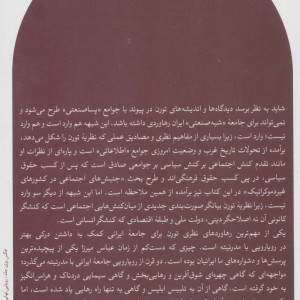 شاید به نظر برسد دیدگاه‌ها و اندیشه‌های تورن در پیوند با جوامع «پساصنعتی» طرح می‌شود و
نمی‌تواند برای جامعهٔ «شبه‌صنعتی» ایران رهاوردی داشته باشد. این شبهه هم وارد است و هم وارد
نیست؛ وارد است، زیرا بسیاری از مفاهیم نظری و مصادیق عملی که نظریهٔ تورن را شکل می‌دهد،
برآمده از تحولات تاریخ غرب و وضعیت امروزی جوامع «اطلاعاتی» است و پاره‌ای از نظرات او
مانند تقدم کنش اجتماعی بر کنش سیاسی بر جوامعی صادق است که پس از کسب حقوق
سیاسی، در پی کسب حقوق فرهنگی‌اند و طرح بحث «جنبش‌های اجتماعی در کشورهای
غیردموکراتیک» در این کتاب نیز برآمده از همین ملاحظه است. اما این شبهه از دیگر سو وارد
نیست، زیرا نظریهٔ تورن بیانگر صورت‌بندی جدیدی از میان‌کنش‌هایی اجتماعی است که کنشگر
کانونی آن نه اصلاحگر دینی، دولت ملی و طبقهٔ اقتصادی که کنشگر انسانی است.
یکی از مهم‌ترین رهاوردهای نظری تورن برای جامعهٔ ایرانی کمک به داشتن درکی بهتر
در رویارویی با مدرنیته است. چیزی که دست‌کم از زمان عباس میرزا یکی از پیچیده‌ترین
پرسش‌ها و دشواره‌های ما ایرانیان بوده است. دو قرن از رویارویی جامعهٔ ایرانی با مدرنیته می‌گذرد؛
مواجهه‌ای که گاهی چهره‌ای شوق‌آفرین و رهایی‌بخش و گاهی سیمایی دردناک و هراس‌انگیز
به خود گرفته است. گاهی از آن به تلبیس ابلیس و گاهی به تنها راه رهایی یاد شده است. اما